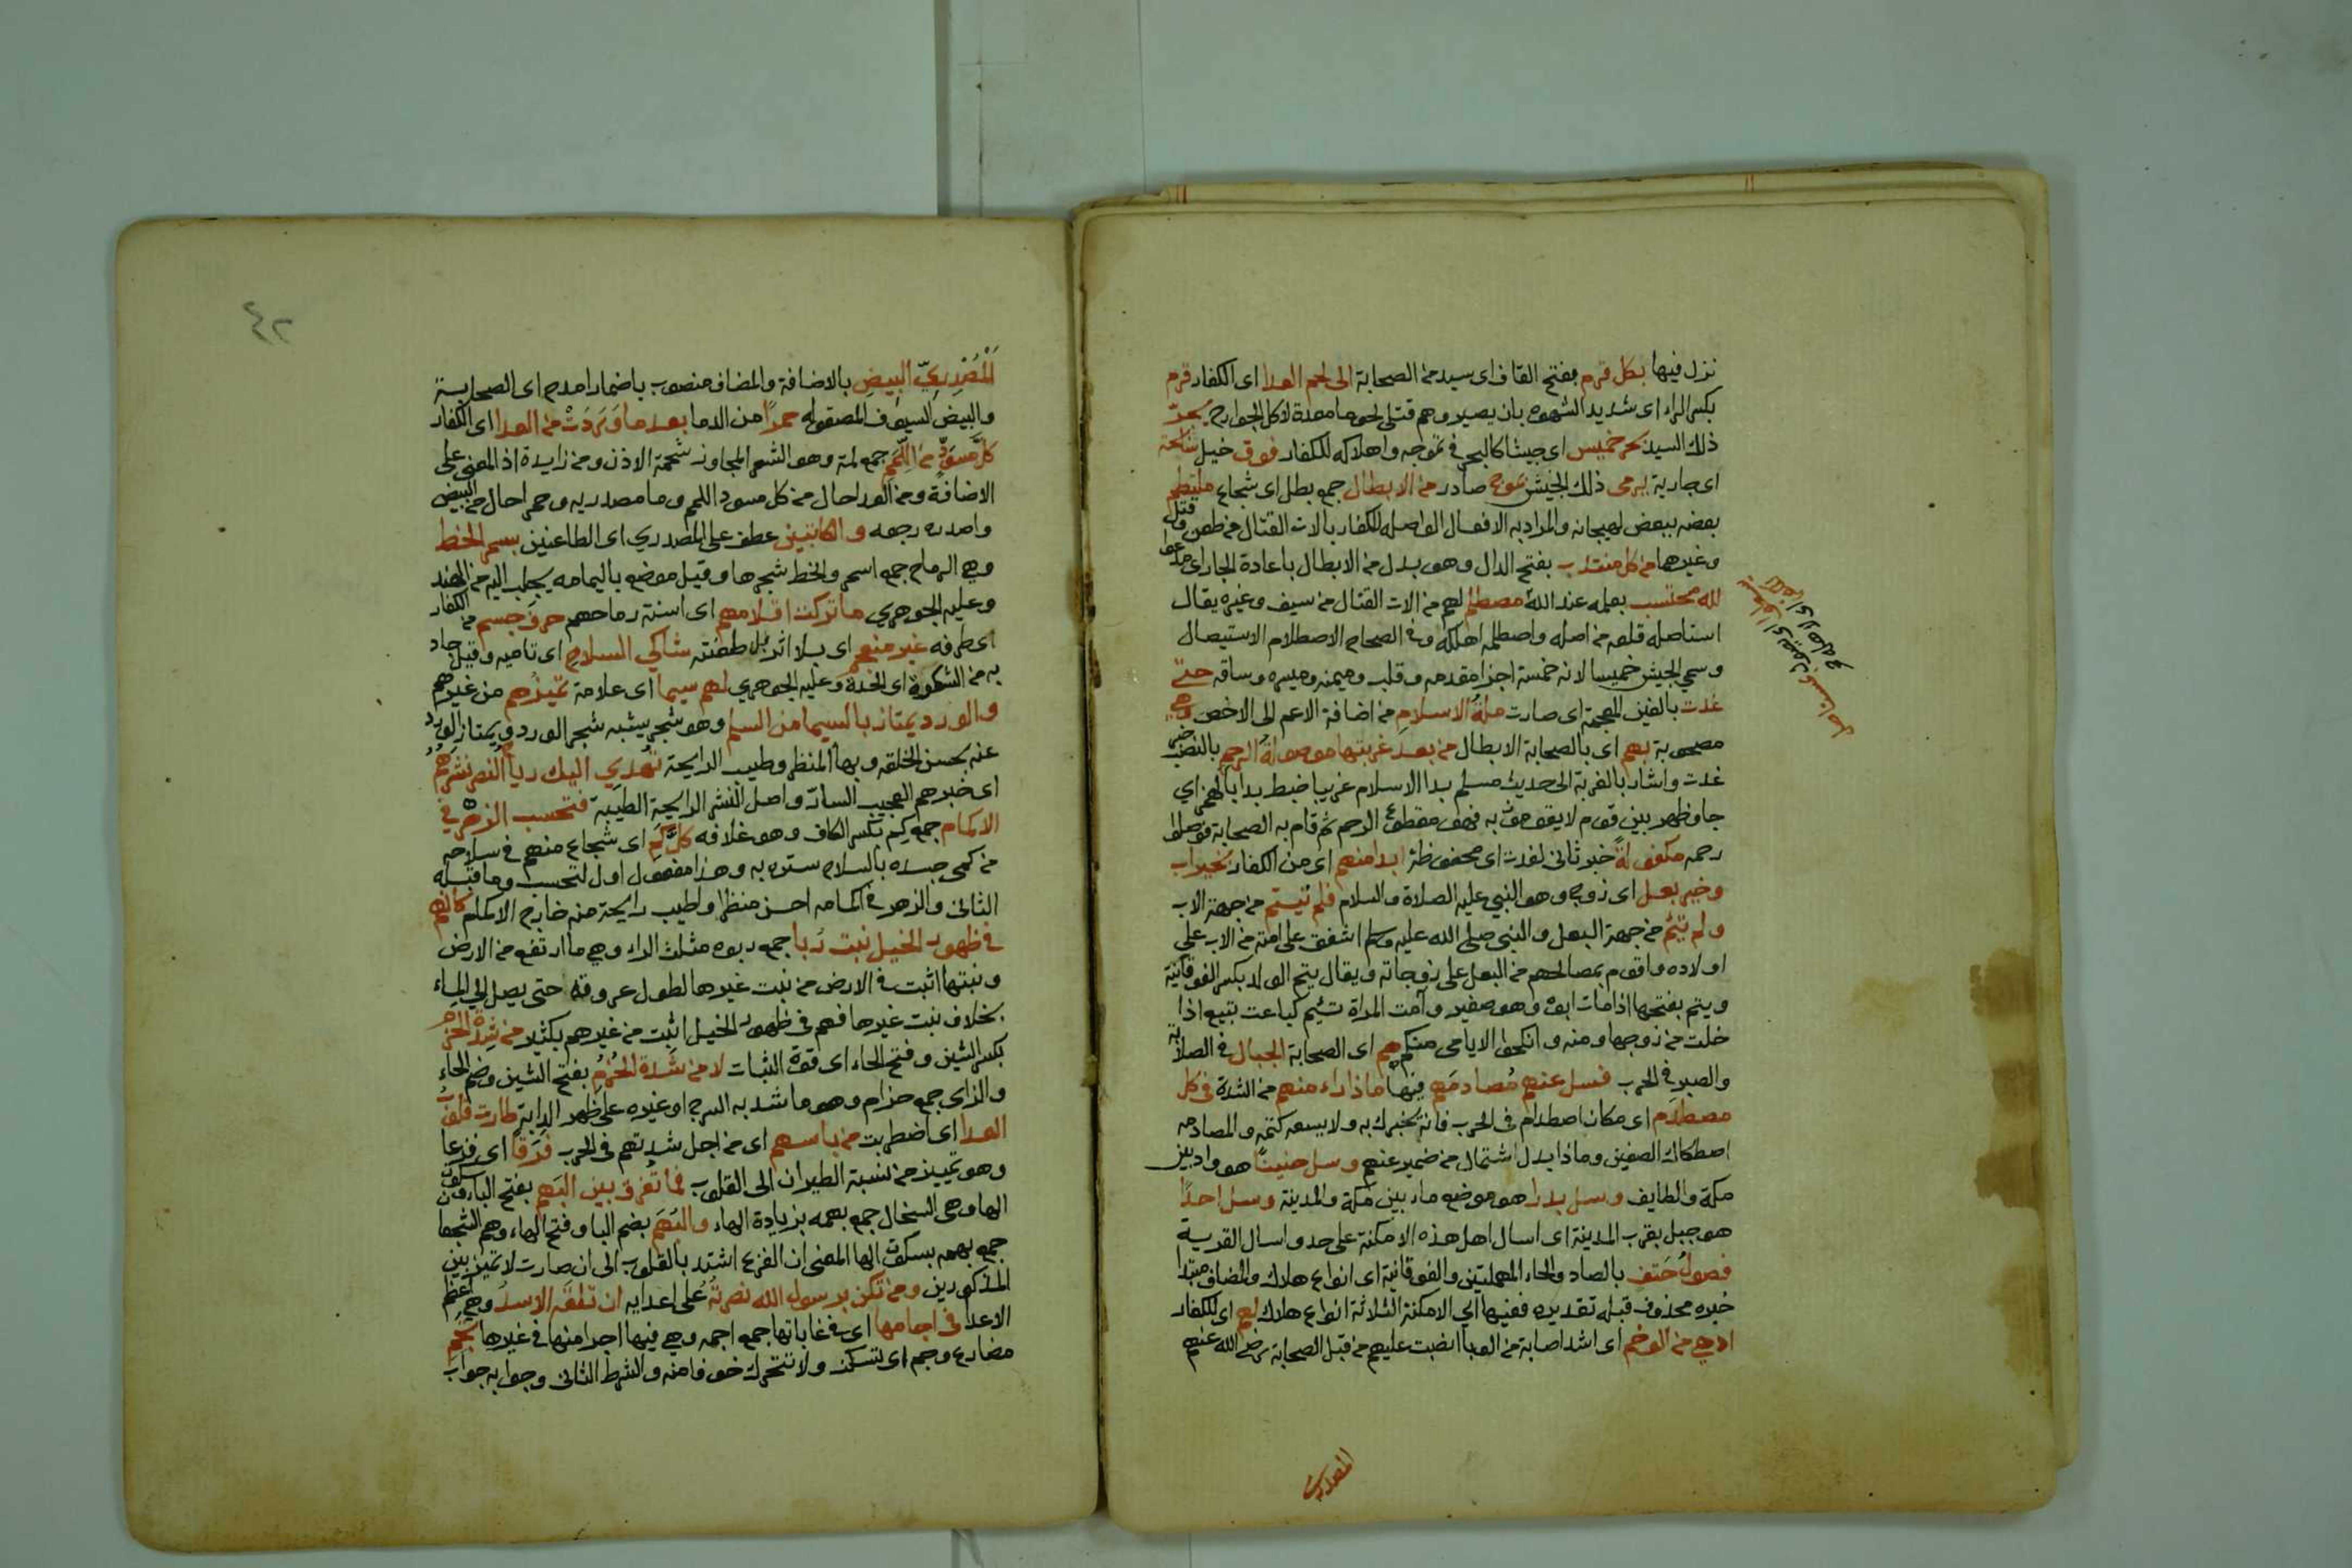 نزل فيها بكل قرم بفتح القاف اى سيد من الصحابة الى لحم العدا اى الكفار قرم
بكسر الراء اى شديد الشهوه بان يصيروهم قتلى لحومها معدة لاكل الجوارح يجرّ
ذلك السيد بحر خميس اى جيشا كالبحر فى تموجه واهلاكه للكفار فوق خيل سابحة
اى جارية يرمى ذلك الجيش بموج صادر من الابطال جمع بطل اى شجاع ملتطم
بعضه ببعض لهيجانه والمراد به الافعال الواصله للكفار بالات القتال من طعن وقتل
وغيرها من كل منتدب بفتح الدال وهو بدل من الابطال باعادة الجار اى مدعو
لله محتسب بعمله عند الله مصطلم لهم من الات القتال من سيف وغيره يقال
استاصله قلعه من اصله واصطلمه اهلكه وفى الصحاح الاصطلام الاستيصال
وسمي الجيش خميسا لانه خمسة اجزا مقدمه وقلب وميمنه وميسره وساقه حتى
غدت بالغين المعجمة اى صارت ملة الاسلام من اضافة الاعم الى الاخص وهي
مصحوبة بهم اى بالصحابة الابطال من بعد غربتها موصولة الرحم بالنصب خبر
غدت واشار بالغربة الى حديث مسلم بدا الاسلام غريبا ضبط بدا بالهمز اي
جا وظهر بين قوم لا يقومون به فهو مقطوع الرحم ثم قام به الصحابة فوصلوا
رحمه مكفولةً خبر ثانى لغدت اى محفوظة ابدا منهم اى من الكفار بخير اب
وخير بعل اى زوج وهو النبي عليه الصلاة والسلام فلم تيتم من جهة الاب
ولم تئم من جهة البعل والنبى صلى الله عليه وسلم اشفق على امته من الاب على
اولاده واقوم بمصالحهم من البعل على زوجاته ويقال يتم الولد بكسر الفوقانية
ويتم بفتحها اذا مات ابوه وهو صغير وآمت المراة تئيم كباعت تبيع اذا
خلت من زوجها ومنه وانكحوا الايامى منكم هم اى الصحابة الجبال فى الصلابة
والصبر فى الحرب فسل عنهم مصادمهم فيها ماذا راء منهم من الشدة فى كل
مصطدم اى مكان اصطدام فى الحرب فانه يخبرك به ولا يسعه كتمه والمصادمه
اصطكاك الصفين وماذا بدل اشتمال من ضمير عنهم وسل حنينا هو واد بين
مكة والطايف وسل بدرا هو موضع ماء بين مكة والمدينة وسل احدًا
هو جبل بقرب المدينة اى اسال اهل هذه الامكنة على حد واسال القرية
فصول حتف بالصاد والحاء المهملتين والفوقانية اى انواع هلاك والمضاف مبتدا
خبره محذوف قبله تقديره ففيها اي الامكنة الثلاثة انواع هلاك لهم اى للكفار
ادهى من الوخم اى اشد اصابة من الوبا انصبت عليهم من قبل الصحابة رضى الله عنهم
المصدرى
٤٢
اَلْمُصْدِرِيِّ البيضِ بالاضافة والمضاف منصوب باضمار امدح اى الصحابة
والبيض السيوف المصقوله حمرًا من الدما بعد ما وَرَدَتْ من العدا اى الكفار
كلَّ مسوَدٍّ من اللِّمَم جمع لمة وهو الشعر المجاوز شحمة الاذن ومن زايدة اذ المعنى على
الاضافة ومن العدا حال من كل مسود اللمم وما مصدريه وحمرا حال من البيض
واصدره رجعه والكاتبين عطف على المصدري اى الطاعنين بسمر الخط
وهي الرماح جمع اسمر والخط شجرها وقيل موضع باليمامه يجلب اليه من الهند
وعليه الجوهري ما تركت اقلامهم اى اسنة رماحهم حرف جسم من الكفار
اى طرفه غير منعجم اى بلا اثر بل طعنته شاكي السلاح اى تاميه وقيل حاد
به من الشكوة اى الحدة وعليه الجوهري لهم سيما اى علامة تميّزهم من غيرهم
والورد يمتاز بالسيما من السلم وهو شجر يشبه شجر الورد ويمتاز الورد
عنه بحسن الخلقه وبهاء المنظر وطيب الرايحة تهدي اليك رياح النصر نشرهم
اى خبرهم العجيب السارّ واصل النشر الرايحة الطيبة فتحسب الزهر في
الاكمام جمع كم بكسر الكاف وهو غلافه كلَّ كَمِ اى شجاع منهم فى سلاحه
من كمى جسده بالسلاح ستره به وهذا مفعول اول لتحسب وما قبله
الثانى والزهر فى اكمامه احسن منظرا واطيب رايحة منه خارج الاكمام كانهم
فى ظهور الخيل نبت رُبا جمع ربوه مثلث الراء وهي ما ارتفع من الارض
ونبتها اثبت فى الارض من نبت غيرها لطول عروقه حتى يصل الى الماء
بخلاف نبت غيرها فهم فى ظهور الخيل اثبت من غيرهم بكثير من شِدة الحَزم
بكسر الشين وفتح الحاء اى قوة الثبات لا من شَدة الحُزم بفتح الشين وضم الحاء
والزاى جمع حزام وهو ما شد به السرج او غيره على ظهر الدابة طارت قلوب
العدا اى اضطربت من باسهم اى من اجل شدتهم فى الحرب فَرَقًا اى فزعا
وهو تمييز من نسبة الطيران الى القلوب فما تُفرق بين البَهم بفتح الباء وسكون
الها وهى السخال جمع بهمه بزيادة الهاء والبُهَم بضم البا وفتح الهاء وهم الشجعا
جمع بهمه بسكون الها المعنى ان الفزع اشتد بالقلوب الى ان صارت لا تميز بين
المذكورين ومن تكن برسول الله نصرته على اعدايه ان تلقه الاسد وهي اعظم
الاعدا فى اجامها اى فى غاباتها جمع اجمه وهي فيها اجرا منها فى غيرها تجم
مضارع وجم اى تسكن ولا تتحرك خوفا منه والشرط الثانى وجوابه جواب